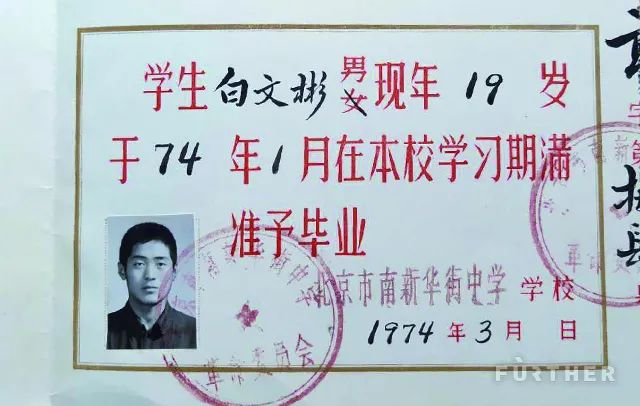 学生白文彬男女现年19岁
于74年1月在本校学习期满
准予毕业
北京市南新华街中学 学校
1974年3月 日
革命委员会
FURTHER